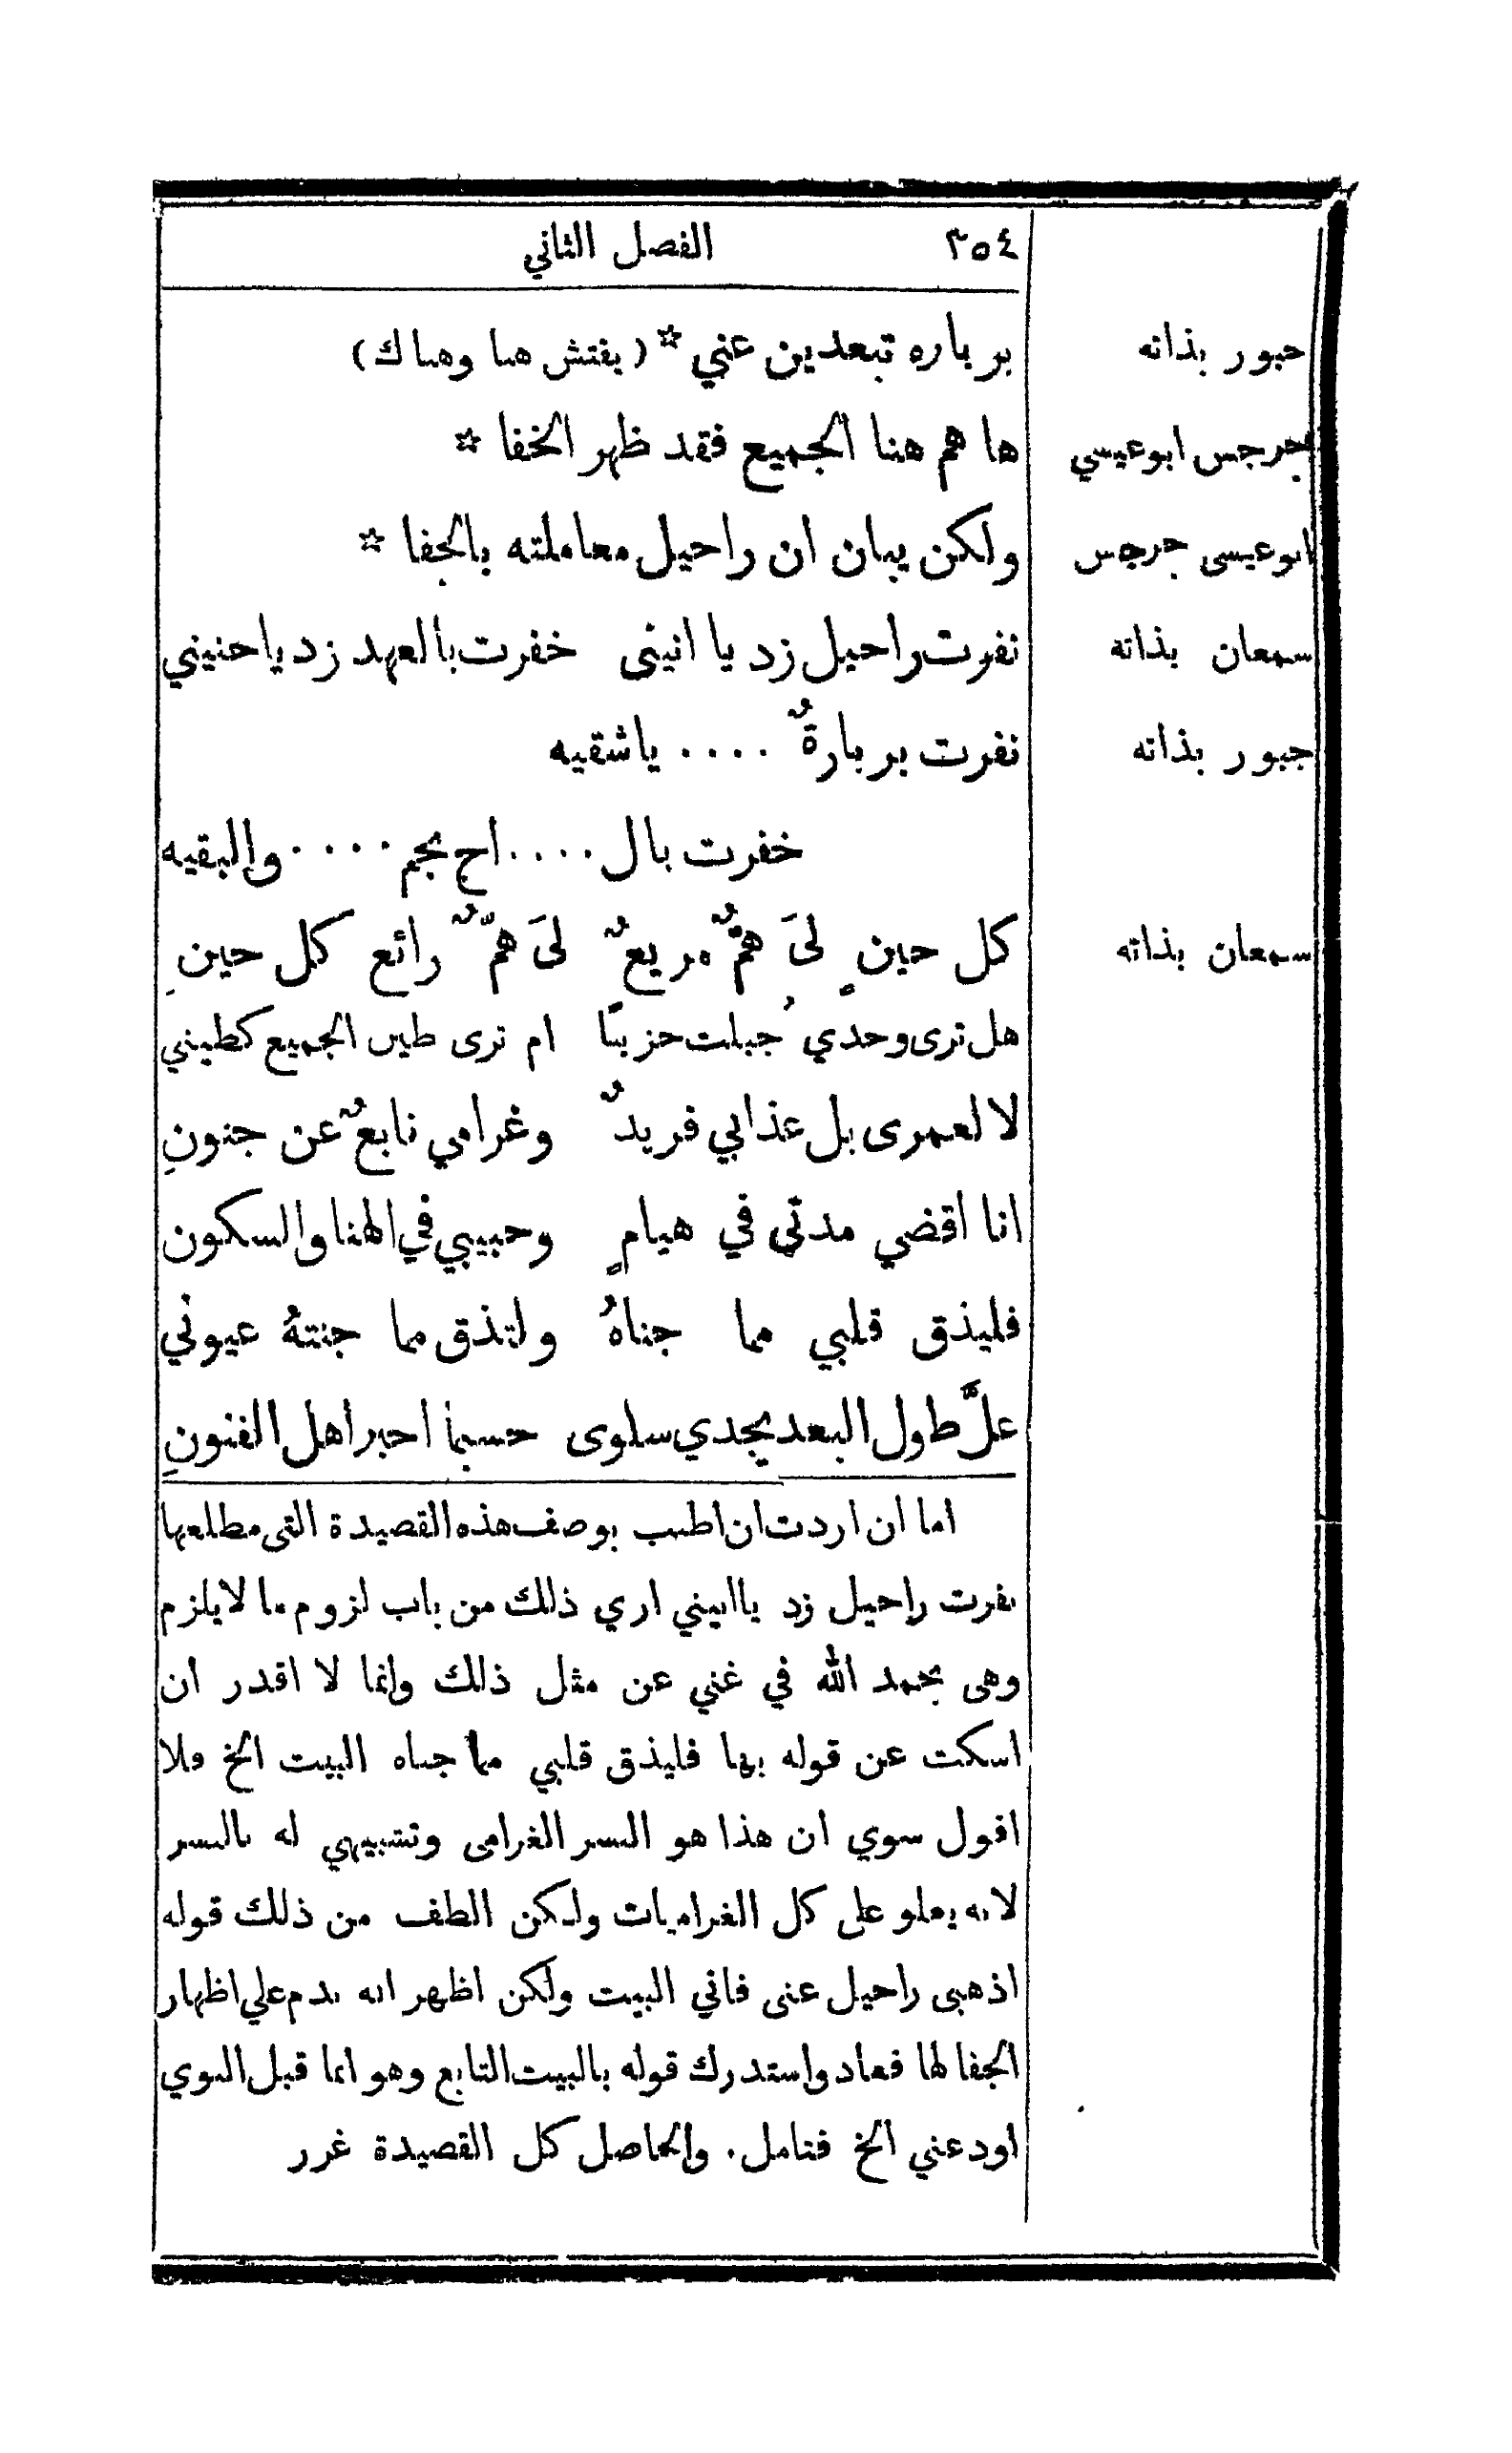 ٣٥٤ الفصل الثاني
جبور بذاته بر باره تبعدين عني * (يفتش هنا وهناك)
جرجس ابوعيسي ها هم هنا الجميع فقد ظهر الخفا *
ابوعيسى جرجس ولكن يبان ان راحيل معاملته بالجفا *
سمعان بذاتة نفرت راحيل زد يا انينى خفرت بالعهد زد ياحنيني
جبور بذاته نفرت بربارةٌ .... ياشقيه
خفرت بال .... اح بجم .... والبقيه
سمعان بذاته كل حينٍ لىَ همٌّ مريعٌ لىَ همٌّ رائع كل حينِ
هل ترى وحدي جبلت حزينًا ام ترى طين الجميع كطيني
لا لعمرى بل عذابي فريدٌ وغرامي نابعٌ عن جنونِ
انا اقضي مدتي في هيامٍ وحبيبي في الهنا والسكون
فليذق قلبي مما جناهُ ولتذق مما جنتهُ عيوني
علَّ طول البعد يجدي سلوى حسبما احبر اهل الفنونِ
اما ان اردت ان اطنب بوصف هذه القصيدة التى مطلعها
نفرت راحيل زد ياانيني اري ذلك من باب لزوم ما لا يلزم
وهى بحمد الله في غني عن مثل ذلك وانما لا اقدر ان
اسكت عن قوله بها فليذق قلبي مما جناه البيت الخ فلا
اقول سوي ان هذا هو السر الغرامى وتشبيهي له بالسر
لانه يعلو على كل الغراميات ولكن الطف من ذلك قوله
اذهبى راحيل عنى فاني البيت ولكن اظهر انه ندم علي اظهار
الجفا لها فعاد واستدرك قوله بالبيت التابع وهو انما قبل النوي
اودعني الخ فتامل. والحاصل كل القصيدة غرر